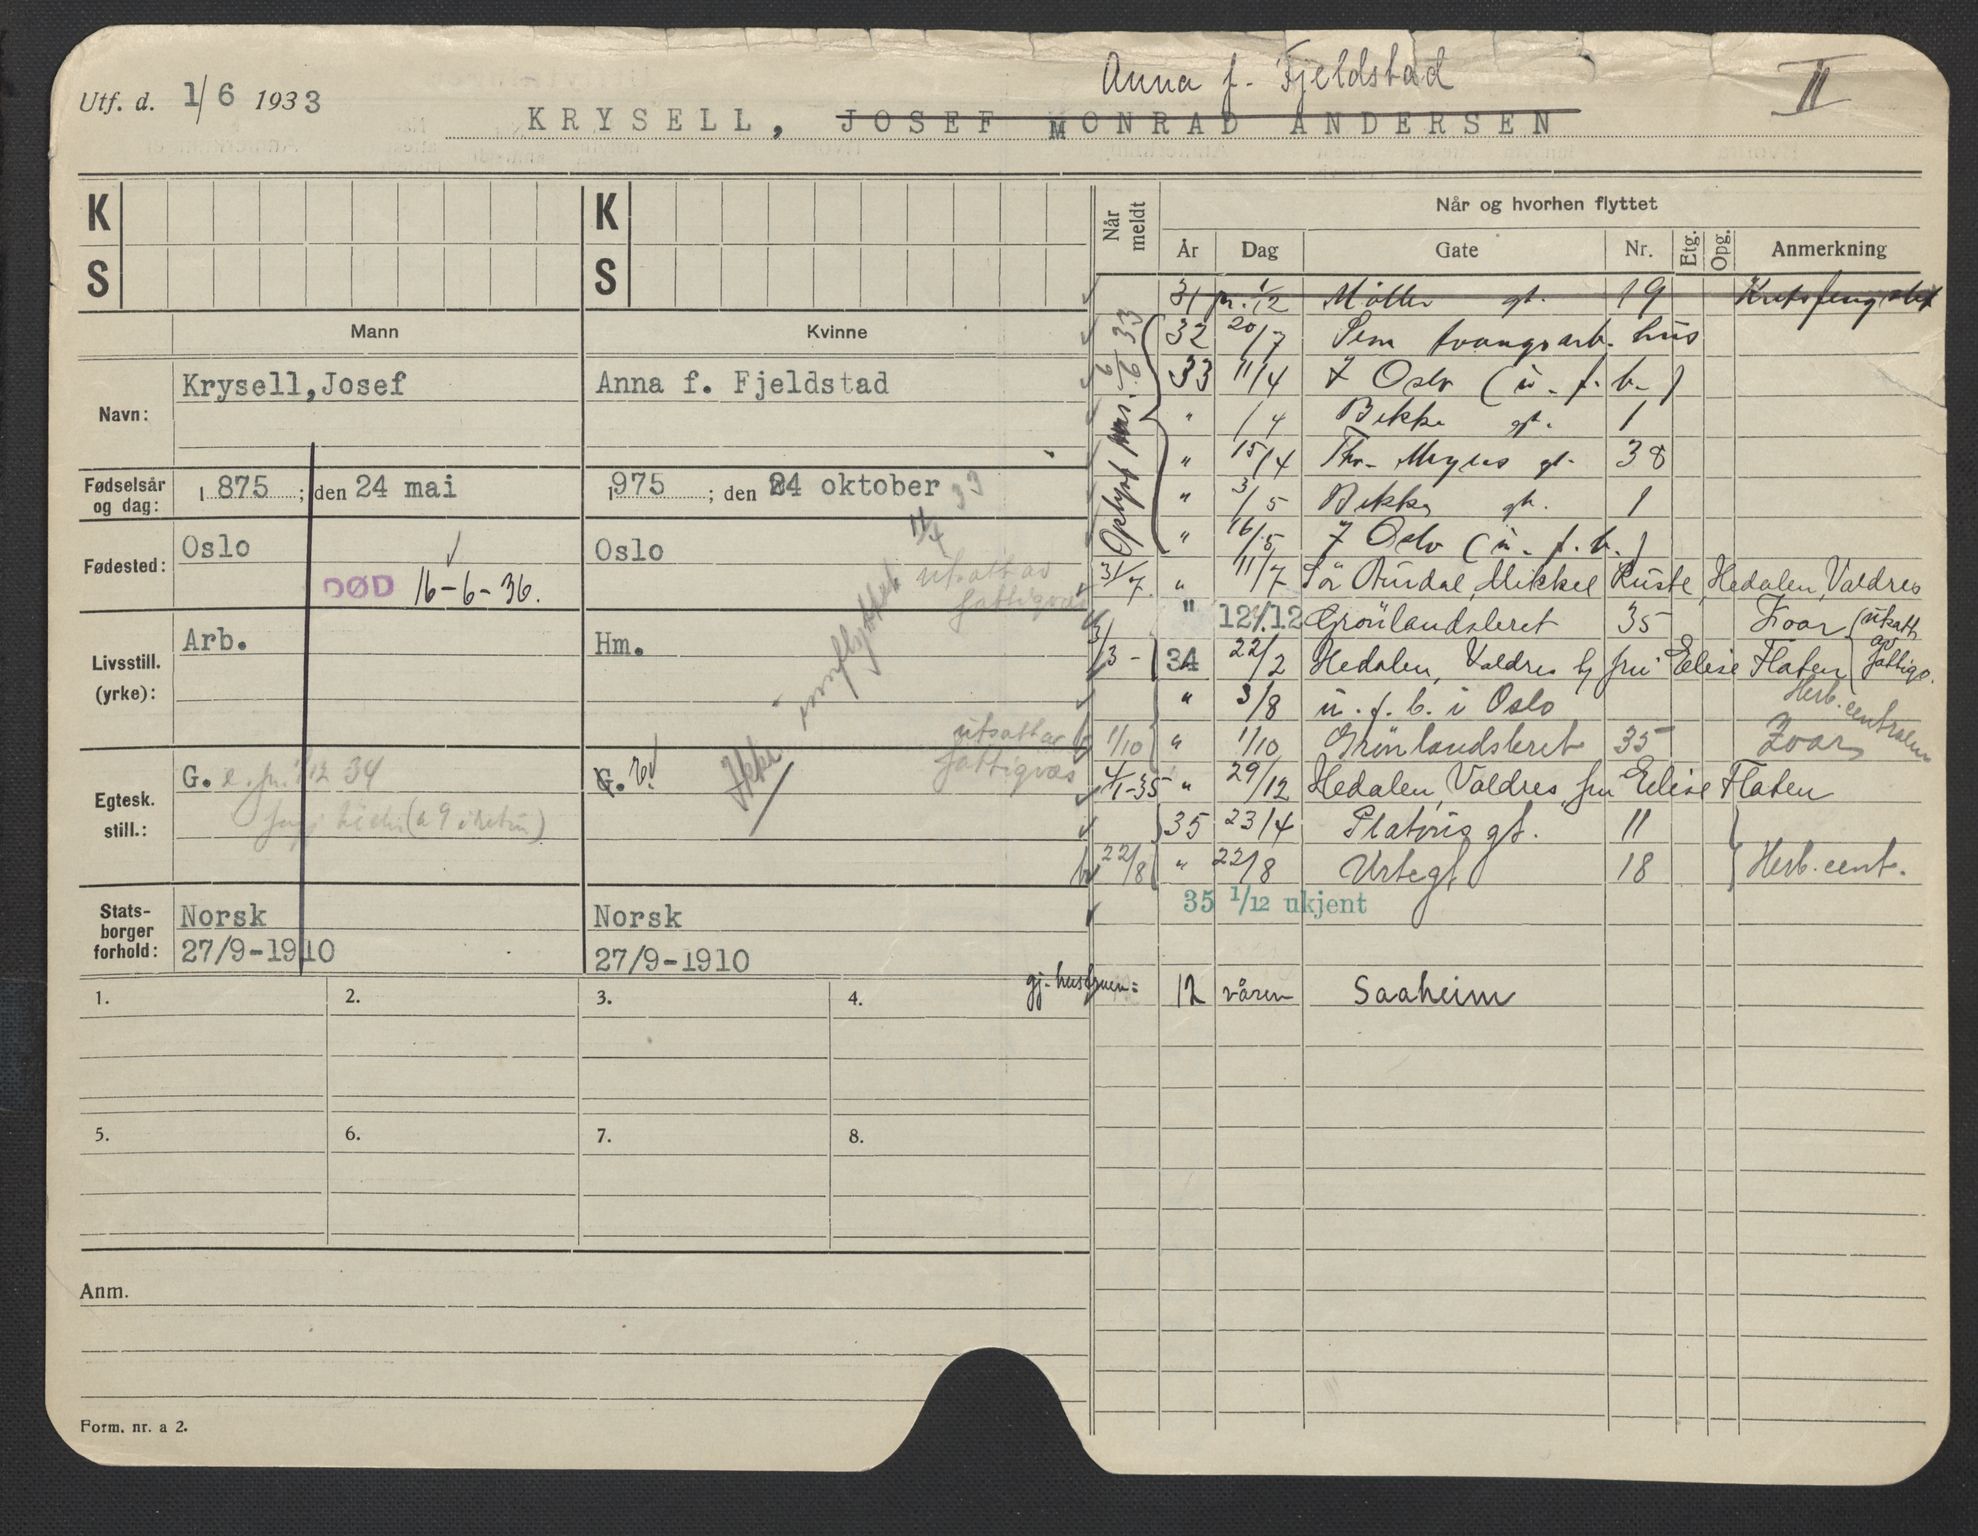 Utf. d. 1/6 1933
Anna f. Fjeldstad
II
KRYSELL, JOSEF MONRAD ANDERSEN
K
S
K
S
Mann
Kvinne
Navn:
Krysell, Josef
Anna f. Fjeldstad
Fødselsår og dag:
1875 ; den 24 mai
1975 ; den 24 oktober
Fødested:
Oslo
DØD 16-6-36.
Oslo
Livsstill. (yrke):
Arb.
Hm.
Ikke innflyttet 11/4 33
utsatt av
fattigvæs
Egtesk. still.:
G. e. pr. 1/12 34
G. v.
utsatt av
fattigvæs
Stats- borger forhold:
Norsk
27/9-1910
Norsk
27/9-1910
1.
2.
3.
4.
5.
6.
7.
8.
Anm.
Form. nr. a 2.
Når meldt
Når og hvorhen flyttet
År
Dag
Gate
Nr.
Etg.
Opg.
Anmerkning
31 pr. 1/12 Möller gt. 19
Oplyst 6/6 33
32 20/7 Sem tvangsarb. hus
33 11/4 I Oslo (u. f. b.)
" /4 Bekke gt. 1
" 15/4 Thv. Meyers gt. 38
" 3/5 Bekke gt. 1
" 16/5 I Oslo (u. f. b.)
31/7 " 11/7 Sör Aurdal, Mikkel Ruste, Hedalen, Valdres
" 12/12 Grönlandsleret 35 Zoar (utsatt av fattigv.
3/3 - 34 22/2 Hedalen, Valdres hj fru Elise Flaten
" 3/8 u. f. b. i Oslo Herb. centralen
1/10 " 1/10 Grönlandsleret 35 Zoar
4/1-35 " 29/12 Hedalen, Valdres, fru Elise Flaten
35 23/4 Platous gt. 11
22/8 " 22/8 Urtegt 18 Herb. cent.
35 1/12 ukjent
gj. hustruen: 12 våren Saaheim